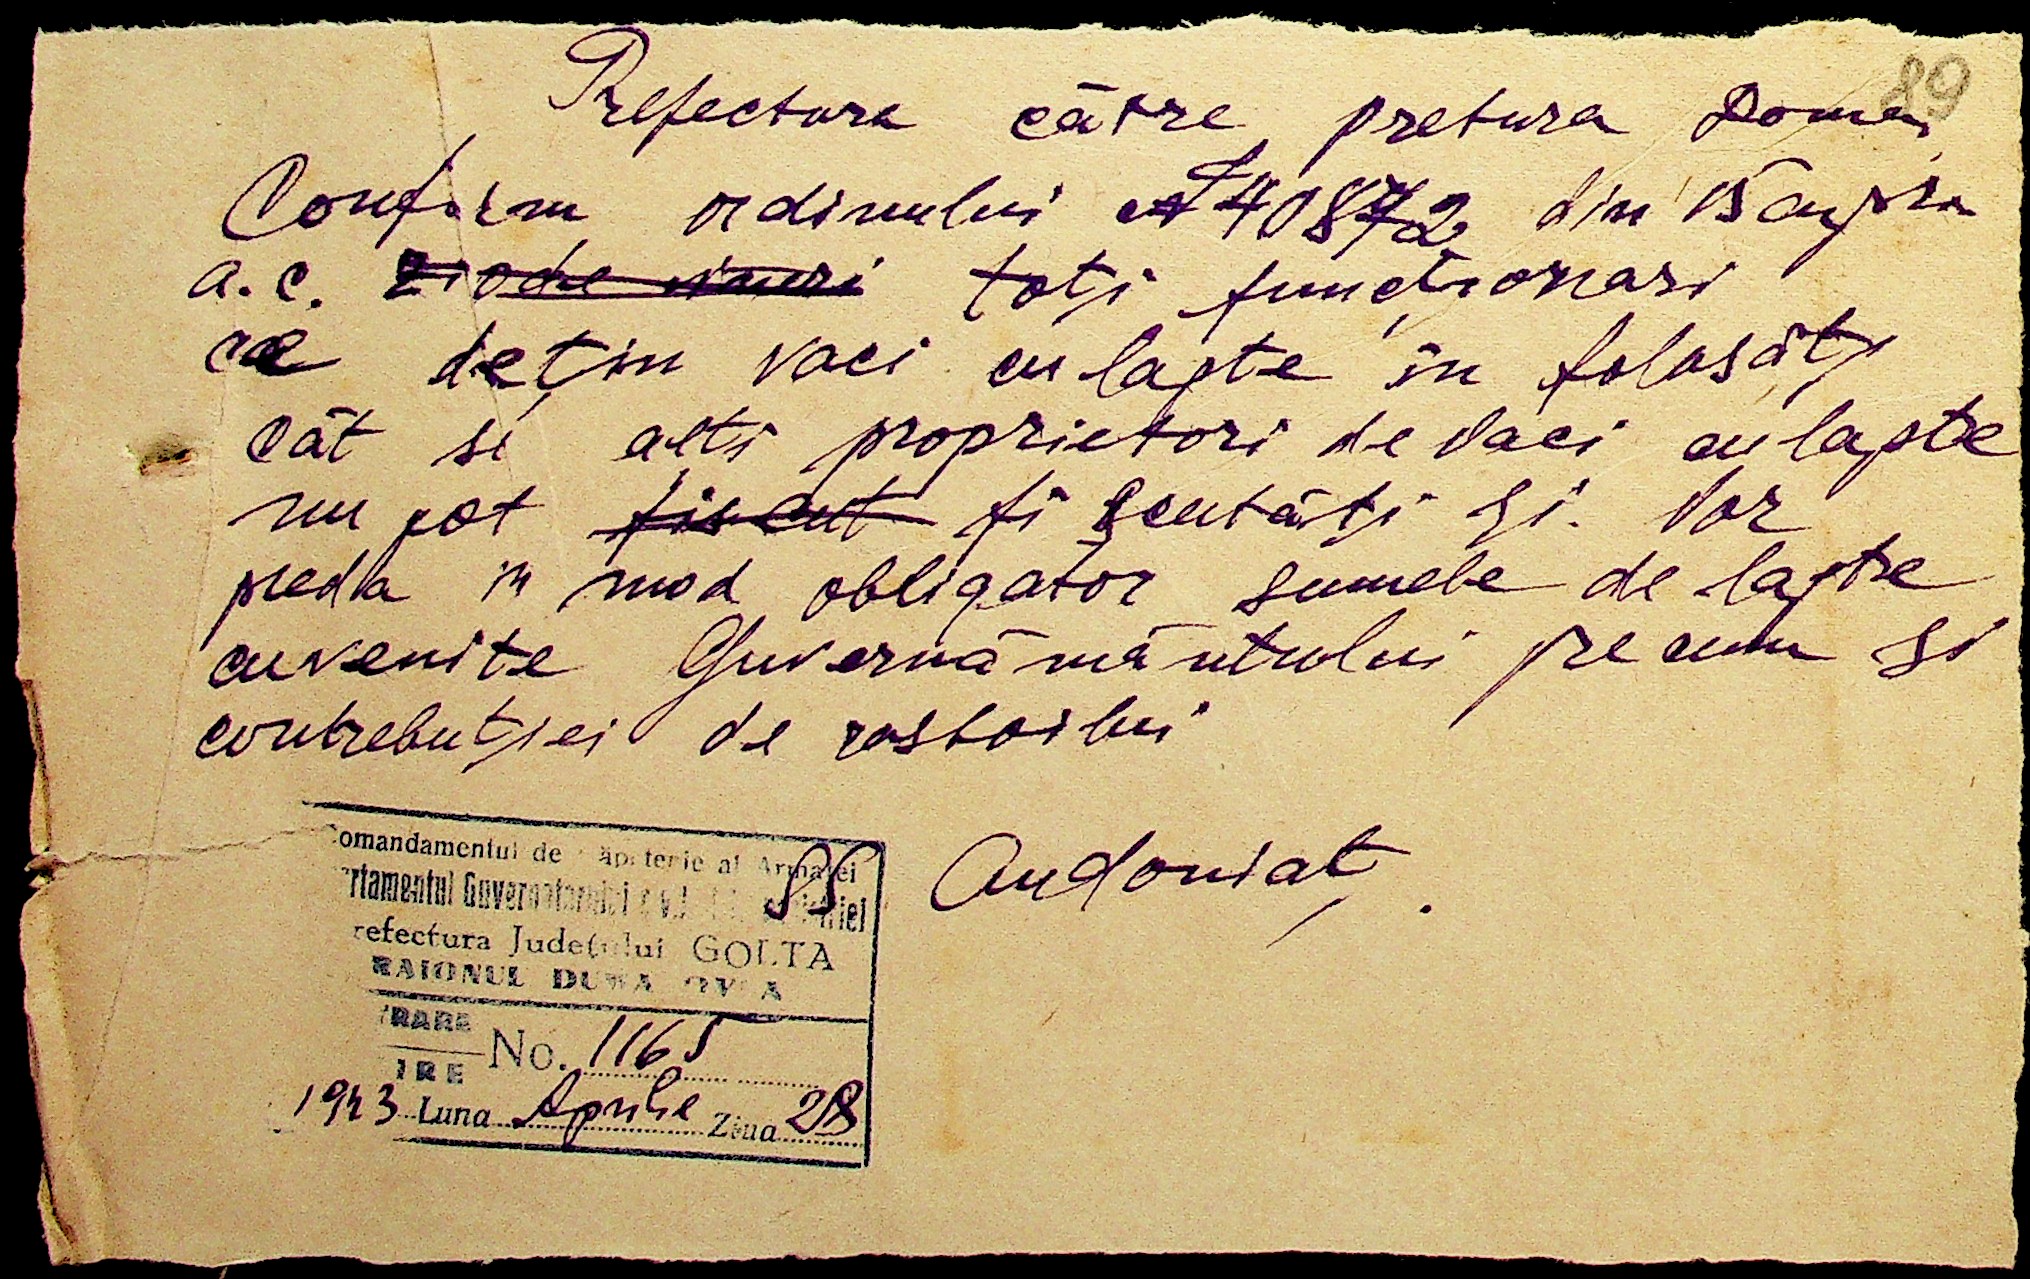 89
Prefectura către pretura Doman
Conform ordinului 40872 din 15 April
a.c. toți funcționari
ce dețin vaci cu lapte în folosâtț
Cât si alti proprietori de vaci cu lapte
nu pot fiscut fi scutâți și. Vor
preda in mod obligator sumele de lapte
cuvenite Guvernământului precum si
contrebuției de rastoilui
SS Andoniat.
omandamentul de ăpitenie al Armatei
rtamentul Guvernatorului
refectura Județului GOLTA
RAIONUL
RARE
No. 1165
IRE
1943 Luna Aprilie Ziua 28